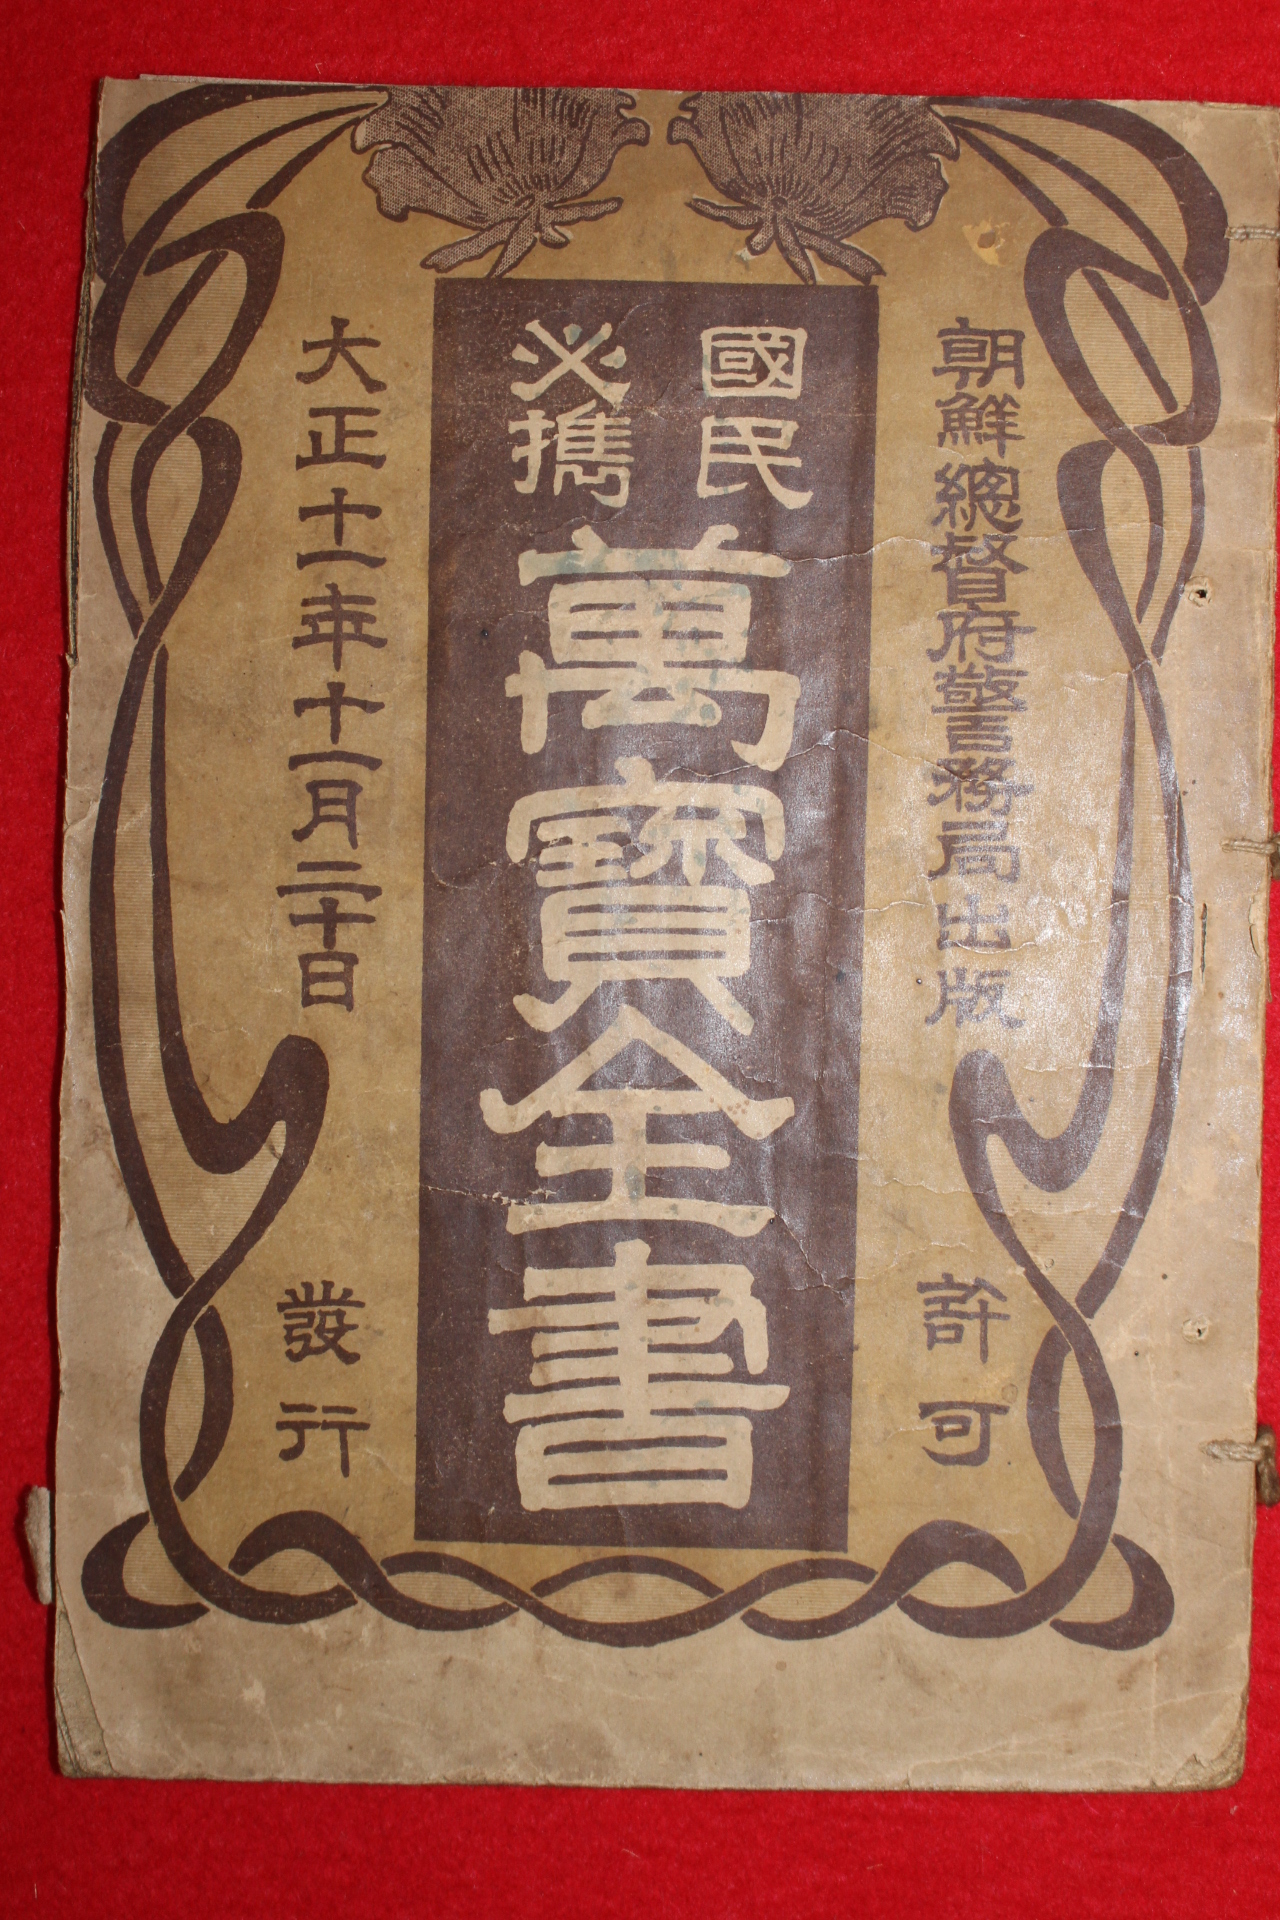 朝鮮總督府警務局出版許可
國民
必携
萬寶全書
大正十一年十一月二十日發行